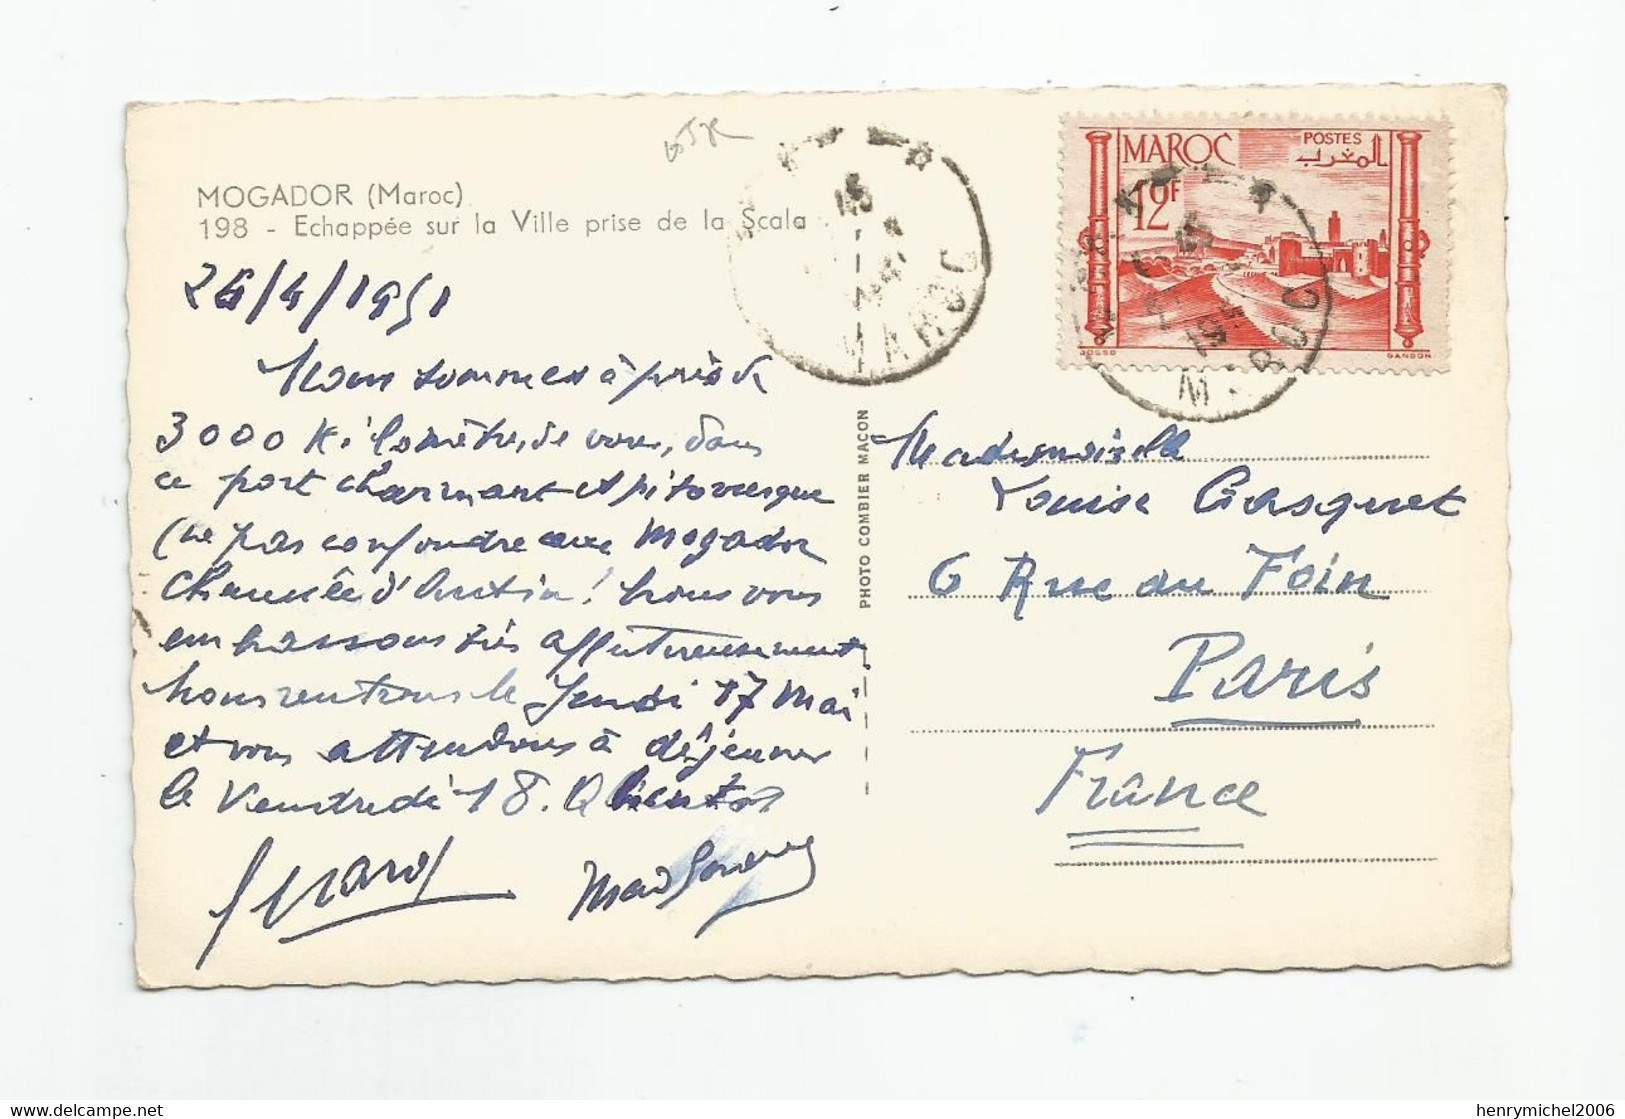 MOGADOR (Maroc)
198 - Echappée sur la Ville prise de la Scala
26/4/1951
Nous sommes à près de
3000 Kilomètres de vous, dans
ce port charmant et pitoresque
(ne pas confondre avec Mogador
Chaussée d'Antin! Nous vous
embrassons très affectueusement
Nous rentrons le Jeudi 17 Mai
et vous attendons à déjeuner
le Vendredi 18. A bientot
PHOTO COMBIER MACON
MAROC
POSTES
المغرب
12F
GANDON
MAROC
MAROC
Mademoiselle
Louise Gasquet
6 Rue du Foin
Paris
France
henrymichel2006